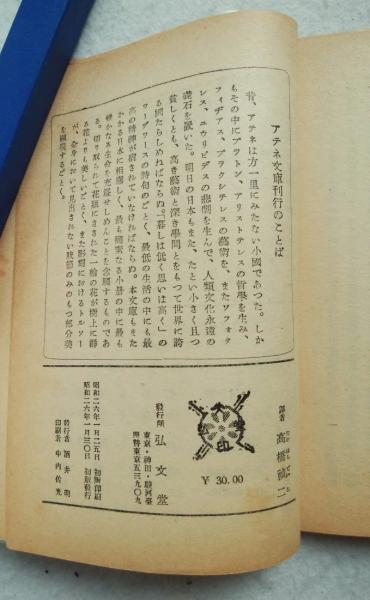 アテネ文庫刊行のことば
昔、アテネは方一里にみたない小國であつた。しか
もその中にプラトン、アリストテレスの哲學を生み、
フィヂアス、プラクシテレスの藝術を、またソフォク
レス、ユウリピデスの悲劇を生んで、人類文化永遠の
礎石を置いた。明日の日本もまた、たとい小さく且つ
貧しくとも、高き藝術と深き學問とをもつて世界に誇
る國たらしめねばならぬ。「暮しは低く思いは高く」の
ワーヅワースの詩句のごとく、最低の生活の中にも最
高の精神が宿されていなければならぬ。本文庫もまた
かかる日本に相應しく、最も簡素なる小册の中に最も
豊かなる生命を充溢せしめんことを念願するものであ
る。切り取られて花瓶にさされた一輪の花が樹上に群
る花よりも美しいごとく、また彫刻におけるトルソー
が、全身において見出されない肢節のみのもつ部分美
を顯現するごとし。
譯者 高橋禎二
¥ 30.00
發行所 弘文堂
東京・神田・駿河臺
振替東京五三九〇九
昭和二六年一月二五日 初版印刷
昭和二六年一月三〇日 初版發行
發行者 酒井 明
印刷者 中内佐光